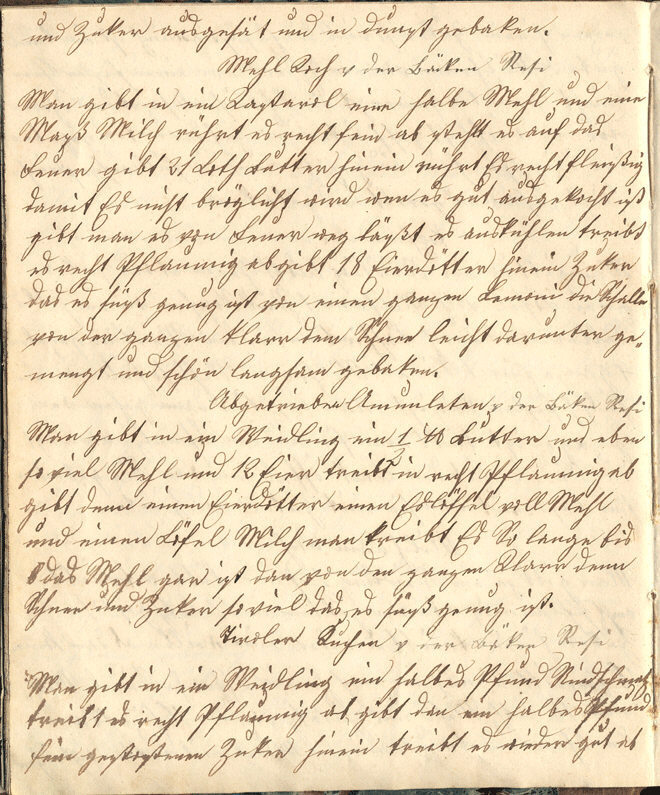 und Zuker ausgesät und in dunst gebaken.
Mehl Koch v der Bäcken Resi
Man gibt in ein Kastarol eine halbe Mehl und eine
Maß Milch rührt es recht fein ab stehlt es auf das
Feuer gibt 21 Loth Butter hinein rührt Es recht fleißig
damit Es nicht bröglicht wird wen es gut ausgekocht ist
gibt man es von Feuer weg läßt es auskühlen treibt
es recht Pflaumig ab gibt 18 Eierdötter hinein Zuker
das es süß genug ist von einen ganzen Lemoni die Schalle
von der ganzen klarr dem Schnee leicht darunter ge„
mengt und schön langsam gebaken.
Abgetrieben Amuleten v der Bäken Resi
Man gibt in ein Weidling ein 1/2 ℔ Butter und eben
so viel Mehl und 12 Eier treibt in recht Pflaumig ab
gibt denn einen Eierdötter einen Eslöffel voll Mehl
und einen Löfel Milch man treibt Es So lange bis
das Mehl gar ist dan von den ganzen Klarr denn
Schnee und Zuker so viel das es süß genug ist.
Tiroler Kuchen v der Bäken Resi
Man gibt in ein Weidling ein halbes Pfund Rindschmalz
treibt es recht Pflaumig ab gibt dan ein halbes Pfund
fein gestossenen Zuker hinein treibt es wieder gut ab